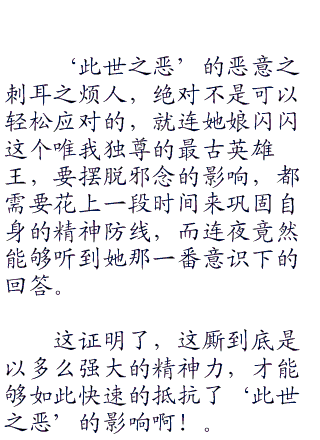 ‘此世之恶’的恶意之
刺耳之烦人，绝对不是可以
轻松应对的，就连她娘闪闪
这个唯我独尊的最古英雄
王，要摆脱邪念的影响，都
需要花上一段时间来巩固自
身的精神防线，而连夜竟然
能够听到她那一番意识下的
回答。
这证明了，这厮到底是
以多么强大的精神力，才能
够如此快速的抵抗了‘此世
之恶’的影响啊！。